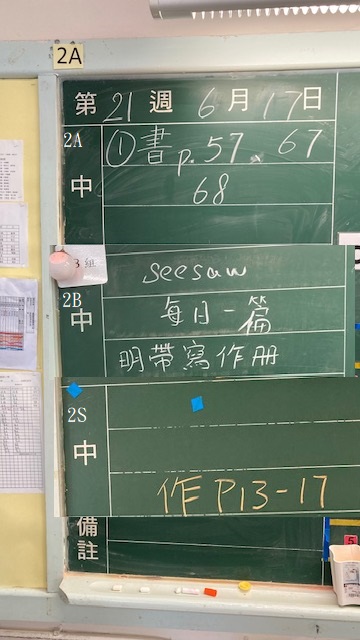 2A
第 21 週 6 月 17 日
2A 中 ①書 p.57、67
68
3組
seesaw
2B 中 每日一篇
明帶寫作册
2S 中
作 P13-17
備註
5